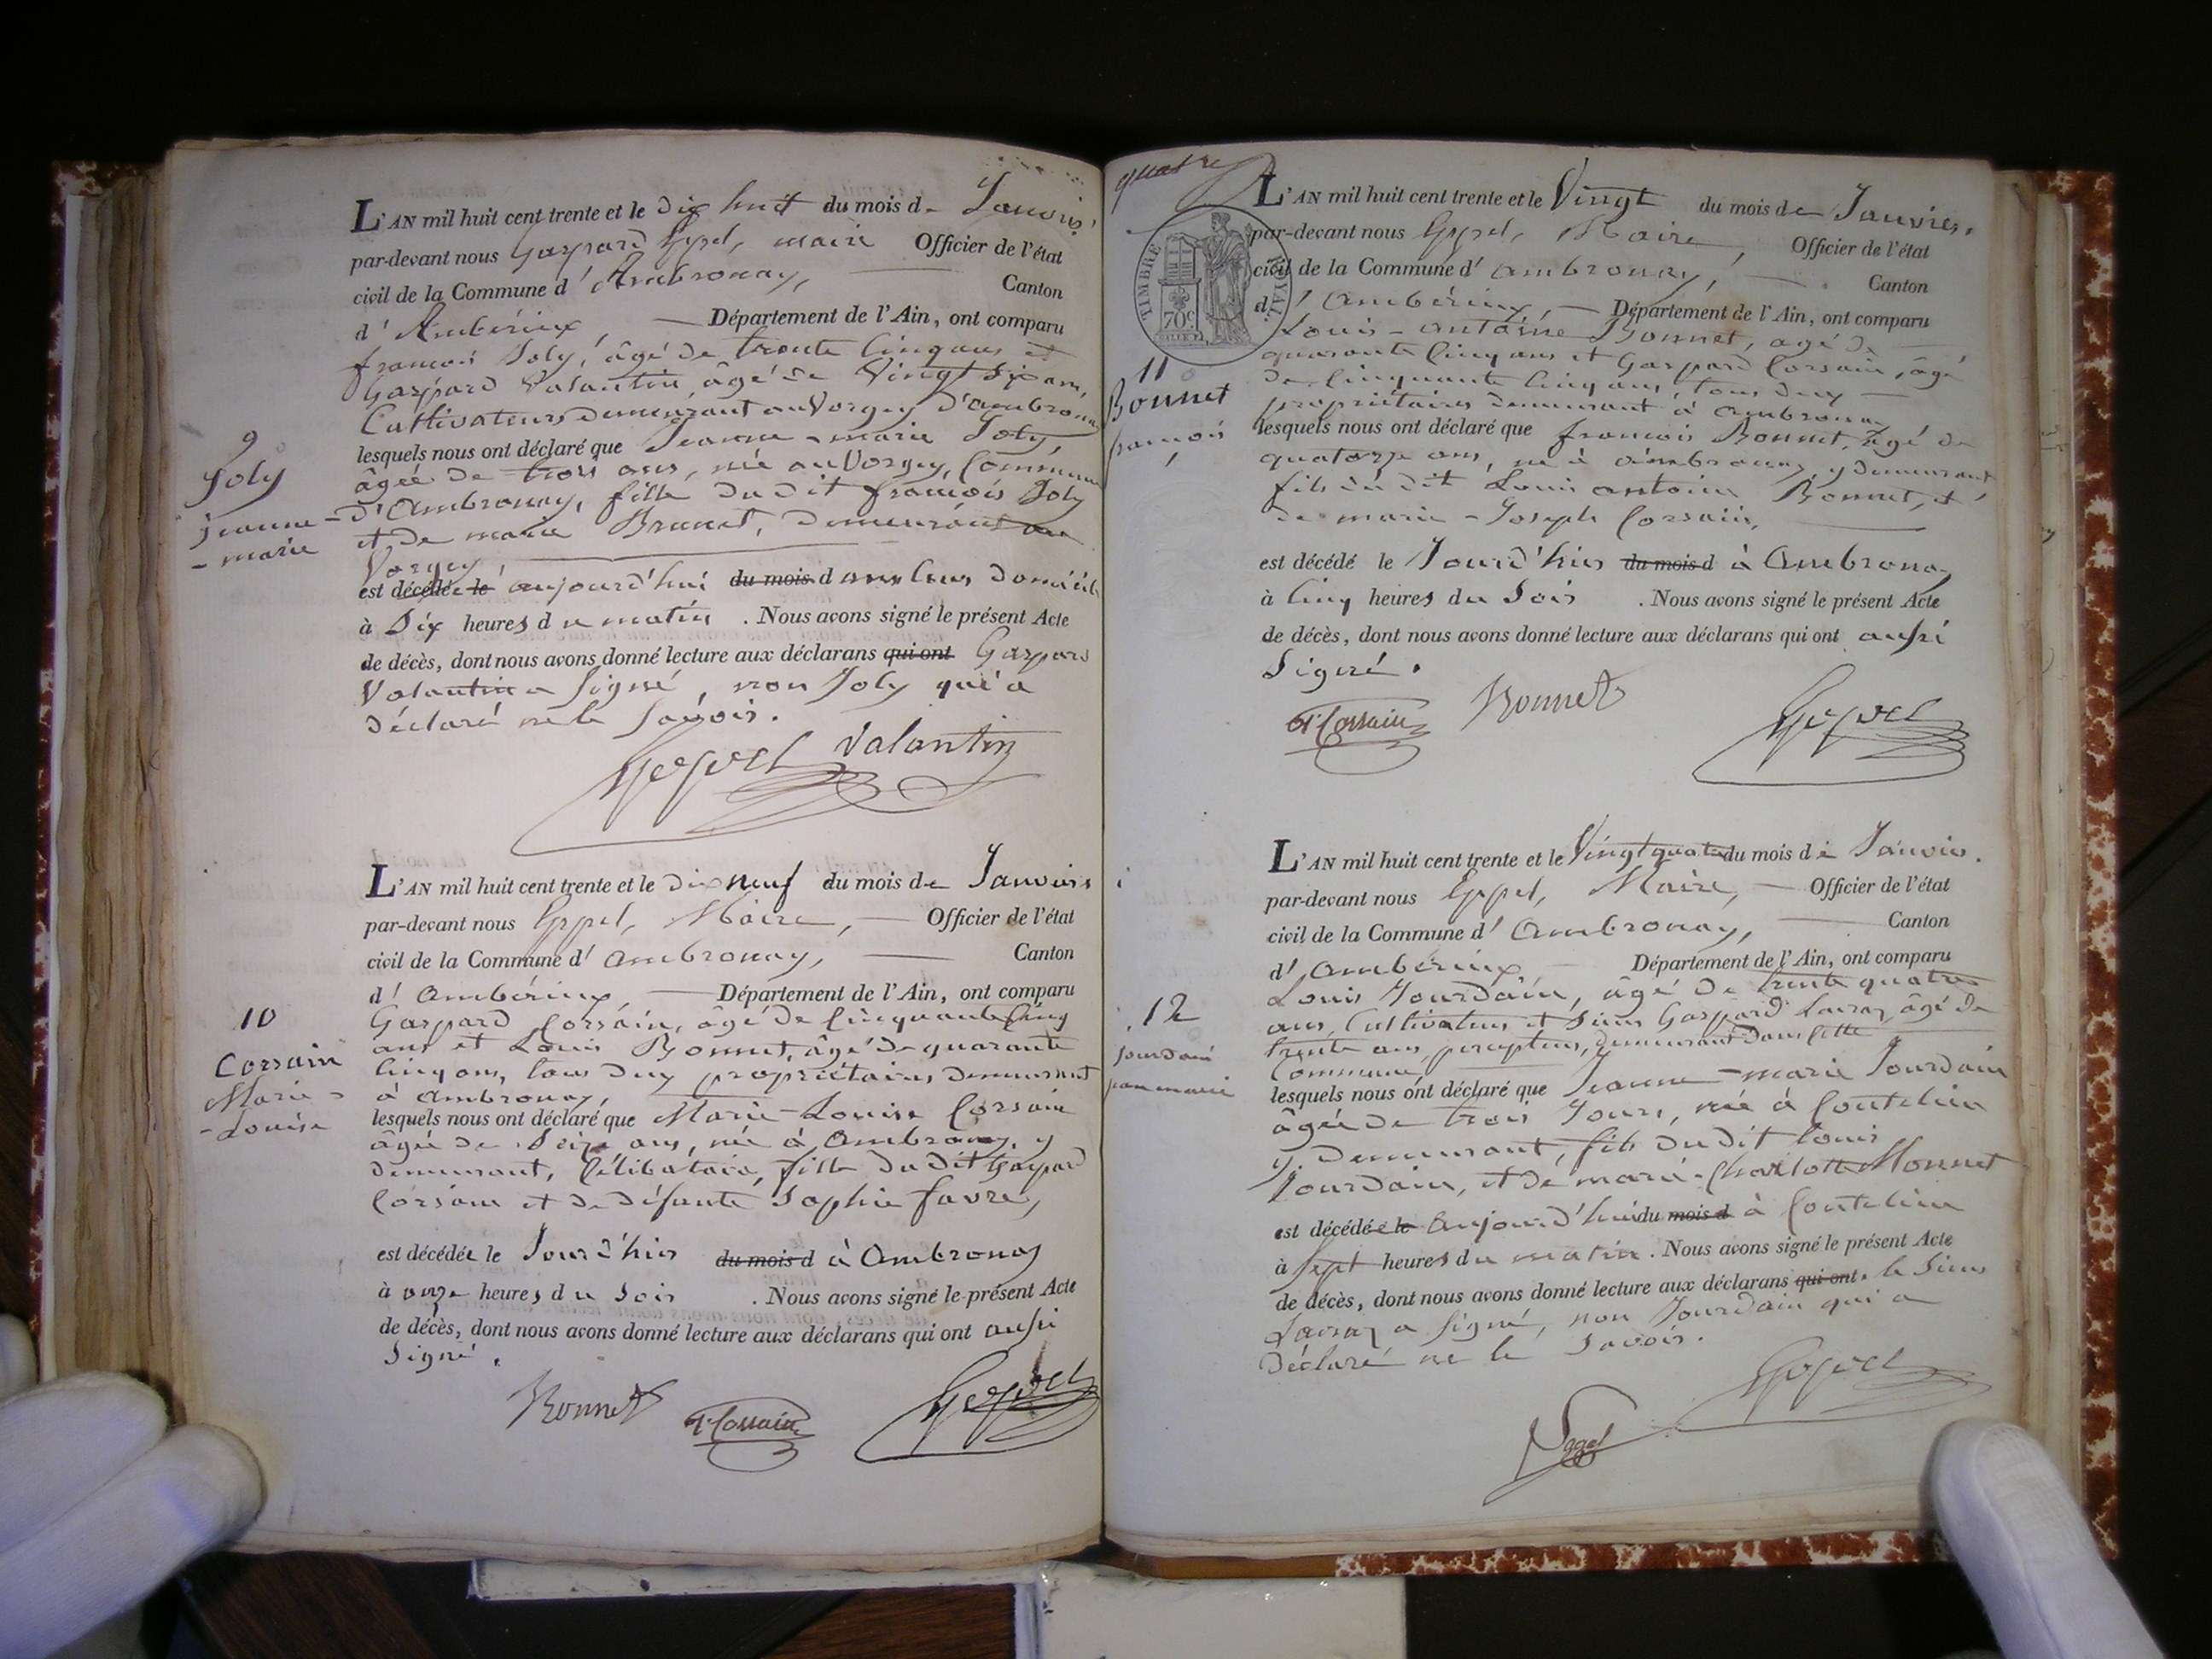 L'AN mil huit cent trente et le dix huit du mois de Janvier
par-devant nous Gaspard Maire Officier de l'état
civil de la Commune d'Ambronay, Canton
d'Ambérieux, Département de l'Ain, ont comparu
françois Joly, âgé de trente cinq ans et
Gaspard Valantin, âgé de Vingt six ans,
Cultivateurs demeurant au Vorgey d'ambronay
9
Joly
jeanne-
-marie
lesquels nous ont déclaré que Jeanne-marie Joly,
âgée de trois ans, née au Vorgey, Commune
d'Ambronay, fille du dit françois Joly
et de marie Brunet, demeurant au
Vorgey,
est décédée le aujourd'hui du mois d ans leur domicile
à Six heures du matin. Nous avons signé le présent Acte
de décès, dont nous avons donné lecture aux déclarans qui ont Gaspard
Valantin a signé, non Joly qui a
déclaré ne le savoir.
Valantin
L'AN mil huit cent trente et le dix neuf du mois de Janvier
par-devant nous Maire, Officier de l'état
civil de la Commune d'ambronay, Canton
d'ambérieux, Département de l'Ain, ont comparu
Gaspard Corsain, âgé de Cinquante Cinq
ans et Louis Bonnet, âgé de quarante
Cinq ans, tous deux propriétaires demeurant
à ambronay,
10
Corsain
Marie-
-Louise
lesquels nous ont déclaré que Marie-Louise Corsain
âgée de Seize ans, née à ambronay, y
demeurant, Célibataire, fille du dit Gaspard
Corsain et de défunte Sophie favre,
est décédée le Jour d'hier du mois d à Ambronay
à onze heures du Soir. Nous avons signé le présent Acte
de décès, dont nous avons donné lecture aux déclarans qui ont aussi
Signé.
Bonnet Corsain
quatre
TIMBRE ROYAL
70c
L'AN mil huit cent trente et le Vingt du mois de Janvier,
par-devant nous Maire, Officier de l'état
civil de la Commune d'ambronay, Canton
d'ambérieux, Département de l'Ain, ont comparu
Louis-antoine Bonnet, âgé de
quarante Cinq ans et Gaspard Corsain, âgé
de Cinquante Cinq ans, tous deux
propriétaires demeurant à ambronay
11
Bonnet
françois
lesquels nous ont déclaré que françois Bonnet, âgé de
quatorze ans, né à ambronay, y demeurant
fils du dit Louis antoine Bonnet, et
de marie-Joseph Corsain,
est décédé le Jour d'hier du mois d à Ambronay
à Cinq heures du Soir. Nous avons signé le présent Acte
de décès, dont nous avons donné lecture aux déclarans qui ont aussi
Signé.
Corsain Bonnet
L'AN mil huit cent trente et le Vingt quatre du mois de Janvier.
par-devant nous Maire, Officier de l'état
civil de la Commune d'Ambronay, Canton
d'Ambérieux, Département de l'Ain, ont comparu
Louis Jourdain, âgé de trente quatre
ans, Cultivateur et Sieur Gaspard âgé de
trente ans, percepteur, demeurant dans cette
Commune,
12
Jourdain
jeanne marie
lesquels nous ont déclaré que Jeanne-marie Jourdain
âgée de trois Jours, née à Coutelieu
y demeurant, fils du dit Louis
Jourdain, et de marie-Charlotte Monnet
est décédée le aujourd'hui du mois d à Coutelieu
à Sept heures du matin. Nous avons signé le présent Acte
de décès, dont nous avons donné lecture aux déclarans qui ont. le Sieur
a signé, non Jourdain qui a
déclaré ne le Savoir.